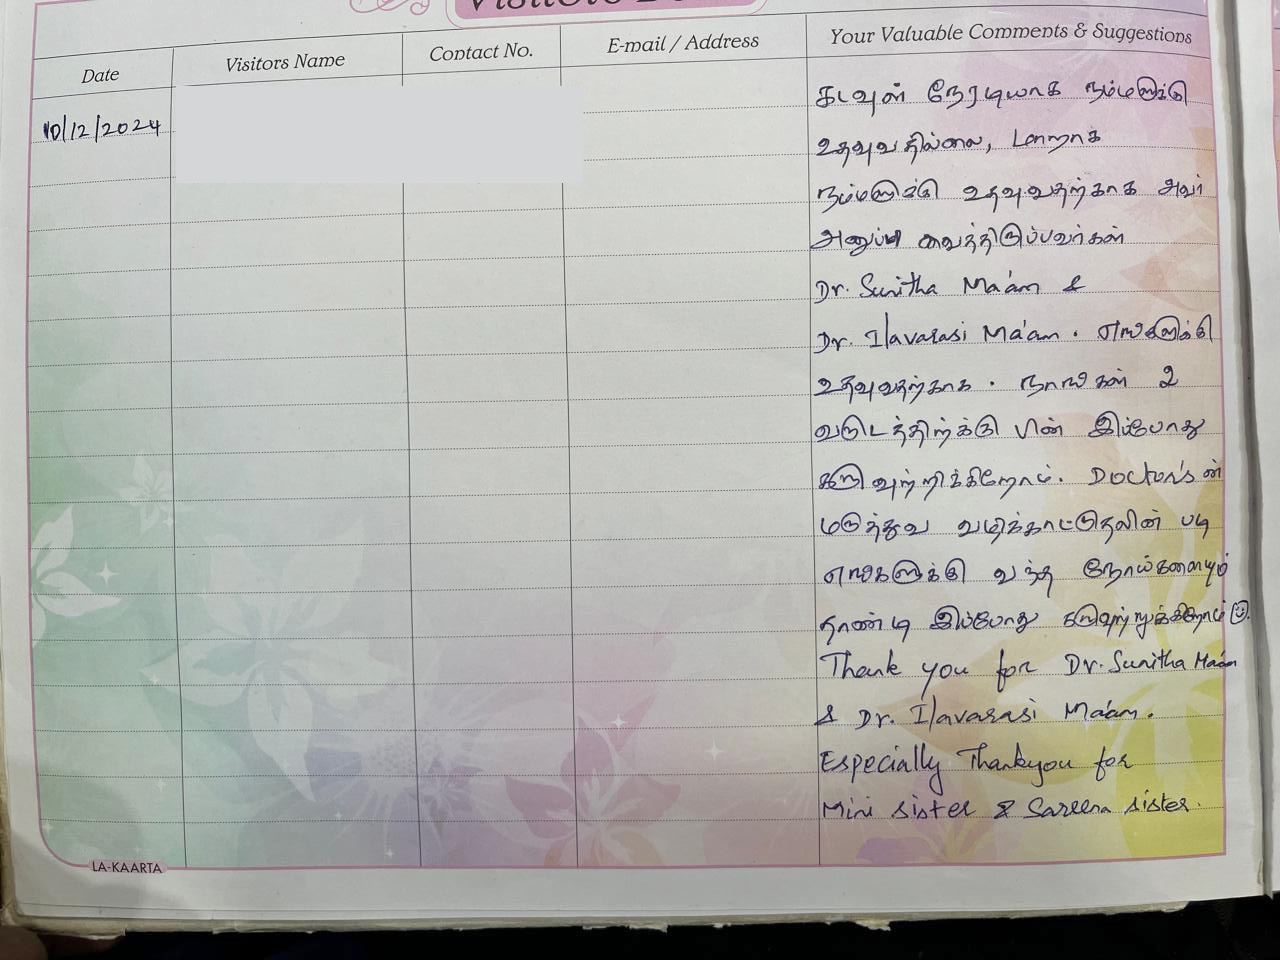 Visitors
Date
Visitors Name
Contact No.
E-mail / Address
Your Valuable Comments & Suggestions
10/12/2024
கடவுள் நேரடியாக நம்மளுக்கு
உதவுவதில்லை, மாறாக
நம்மளுக்கு உதவுவதற்காக அவர்
அனுப்பி வைத்திருப்பவர்கள்
Dr. Sunitha Ma'am &
Dr. Ilavarasi Ma'am. எங்களுக்கு
உதவுவதற்காக. நாங்கள் 2
வருடத்திற்க்கு பின் இப்போது
கருவுற்றிக்கிறோம். Doctor'sன்
மருத்துவ வழிக்காட்டுதலின் படி
எங்களுக்கு வந்த நோய்களையும்
தாண்டி இப்போது கருவுற்றுக்கிறோம்
Thank you for Dr. Sunitha Ma'am
& Dr. Ilavarasi Ma'am.
Especially Thankyou for
Mini sister & Sareena sister.
LA-KAARTA